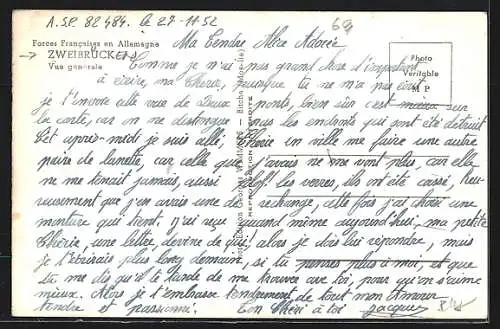 A.S.P. 82484. le 27-11-52
69
Forces Françaises en Allemagne
ZWEIBRÜCKEN
Vue générale
Photo
Véritable
M P
Ma Tendre Mère Adorée
Comme je n'ai pas grand chose d'important
à écrire, ma Chérie, puisque tu ne m'a pas écrit
je t'envoie cette vue de Deux ponts, bien sûr c'est mieux sur
la carte, car on ne distingue pas les enfants qui sont été détruit
Cet après-midi je suis allé, Chérie en ville me faire une autre
paire de lunette, car celle que j'avais ne me vont plus, car elle
ne me tenait jamais, aussi les verres, ils ont été cassé, heu-
reusement que j'en avais une de rechange, cette fois j'ai choisi une
monture qui tient. J'ai reçu quand même aujourd'hui, ma petite
Chérie, une lettre, devine de qui, alors je dois lui répondre, mais
je t'écrirais plus long demain, si tu penses plus à moi, et que
tu me dis qu'il te tarde de me trouver avec toi, pour qu'on s'aime
mieux. Alors je t'embrasse tendrement de tout mon Amour
tendre et passionné. Ton Chéri à toi Jacques
REPRODUCTION INTERDITE